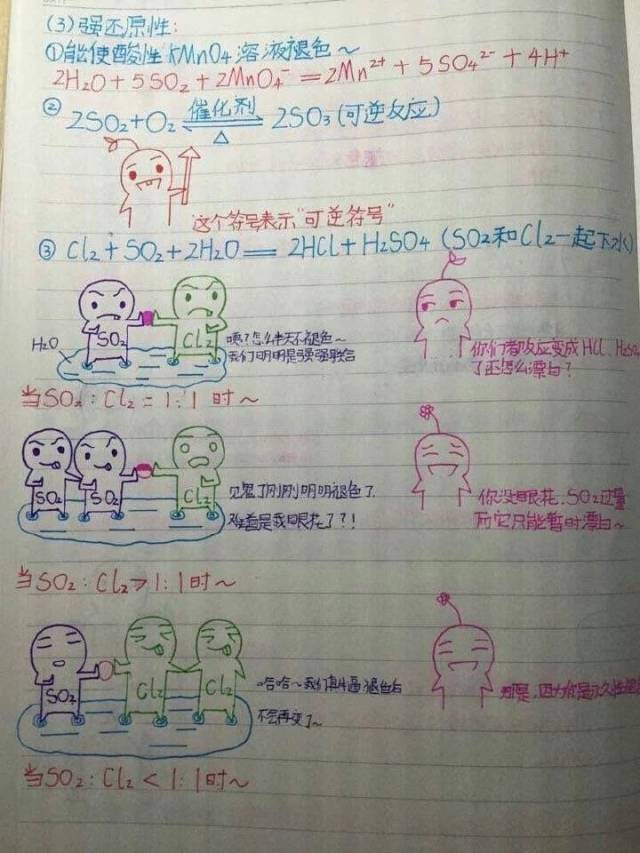 (3)强还原性:
①能使酸性KMnO4溶液褪色~
2H₂O+5SO₂+2MnO₄⁻=2Mn²⁺+5SO₄²⁻+4H⁺
② 2SO₂+O₂ 催化剂 △ 2SO₃(可逆反应)
这个符号表示"可逆符号"
③ Cl₂+SO₂+2H₂O=2HCl+H₂SO₄(SO₂和Cl₂一起下水)
SO₂ Cl₂
H₂O
嗯?怎么半天不褪色~
我们明明是强强联合
你们都反应变成HCl、H₂SO₄
了还怎么漂白?
当SO₂:Cl₂=1:1时~
SO₂ SO₂ Cl₂
见鬼了刚刚明明褪色了
难道是我眼花了?!
你没眼花,SO₂过量
所它只能暂时漂白~
当SO₂:Cl₂>1:1时~
SO₂ Cl₂ Cl₂
哈哈~我们真牛逼褪色后
不会再变了~
那是,因为你是永久性
当SO₂:Cl₂<1:1时~